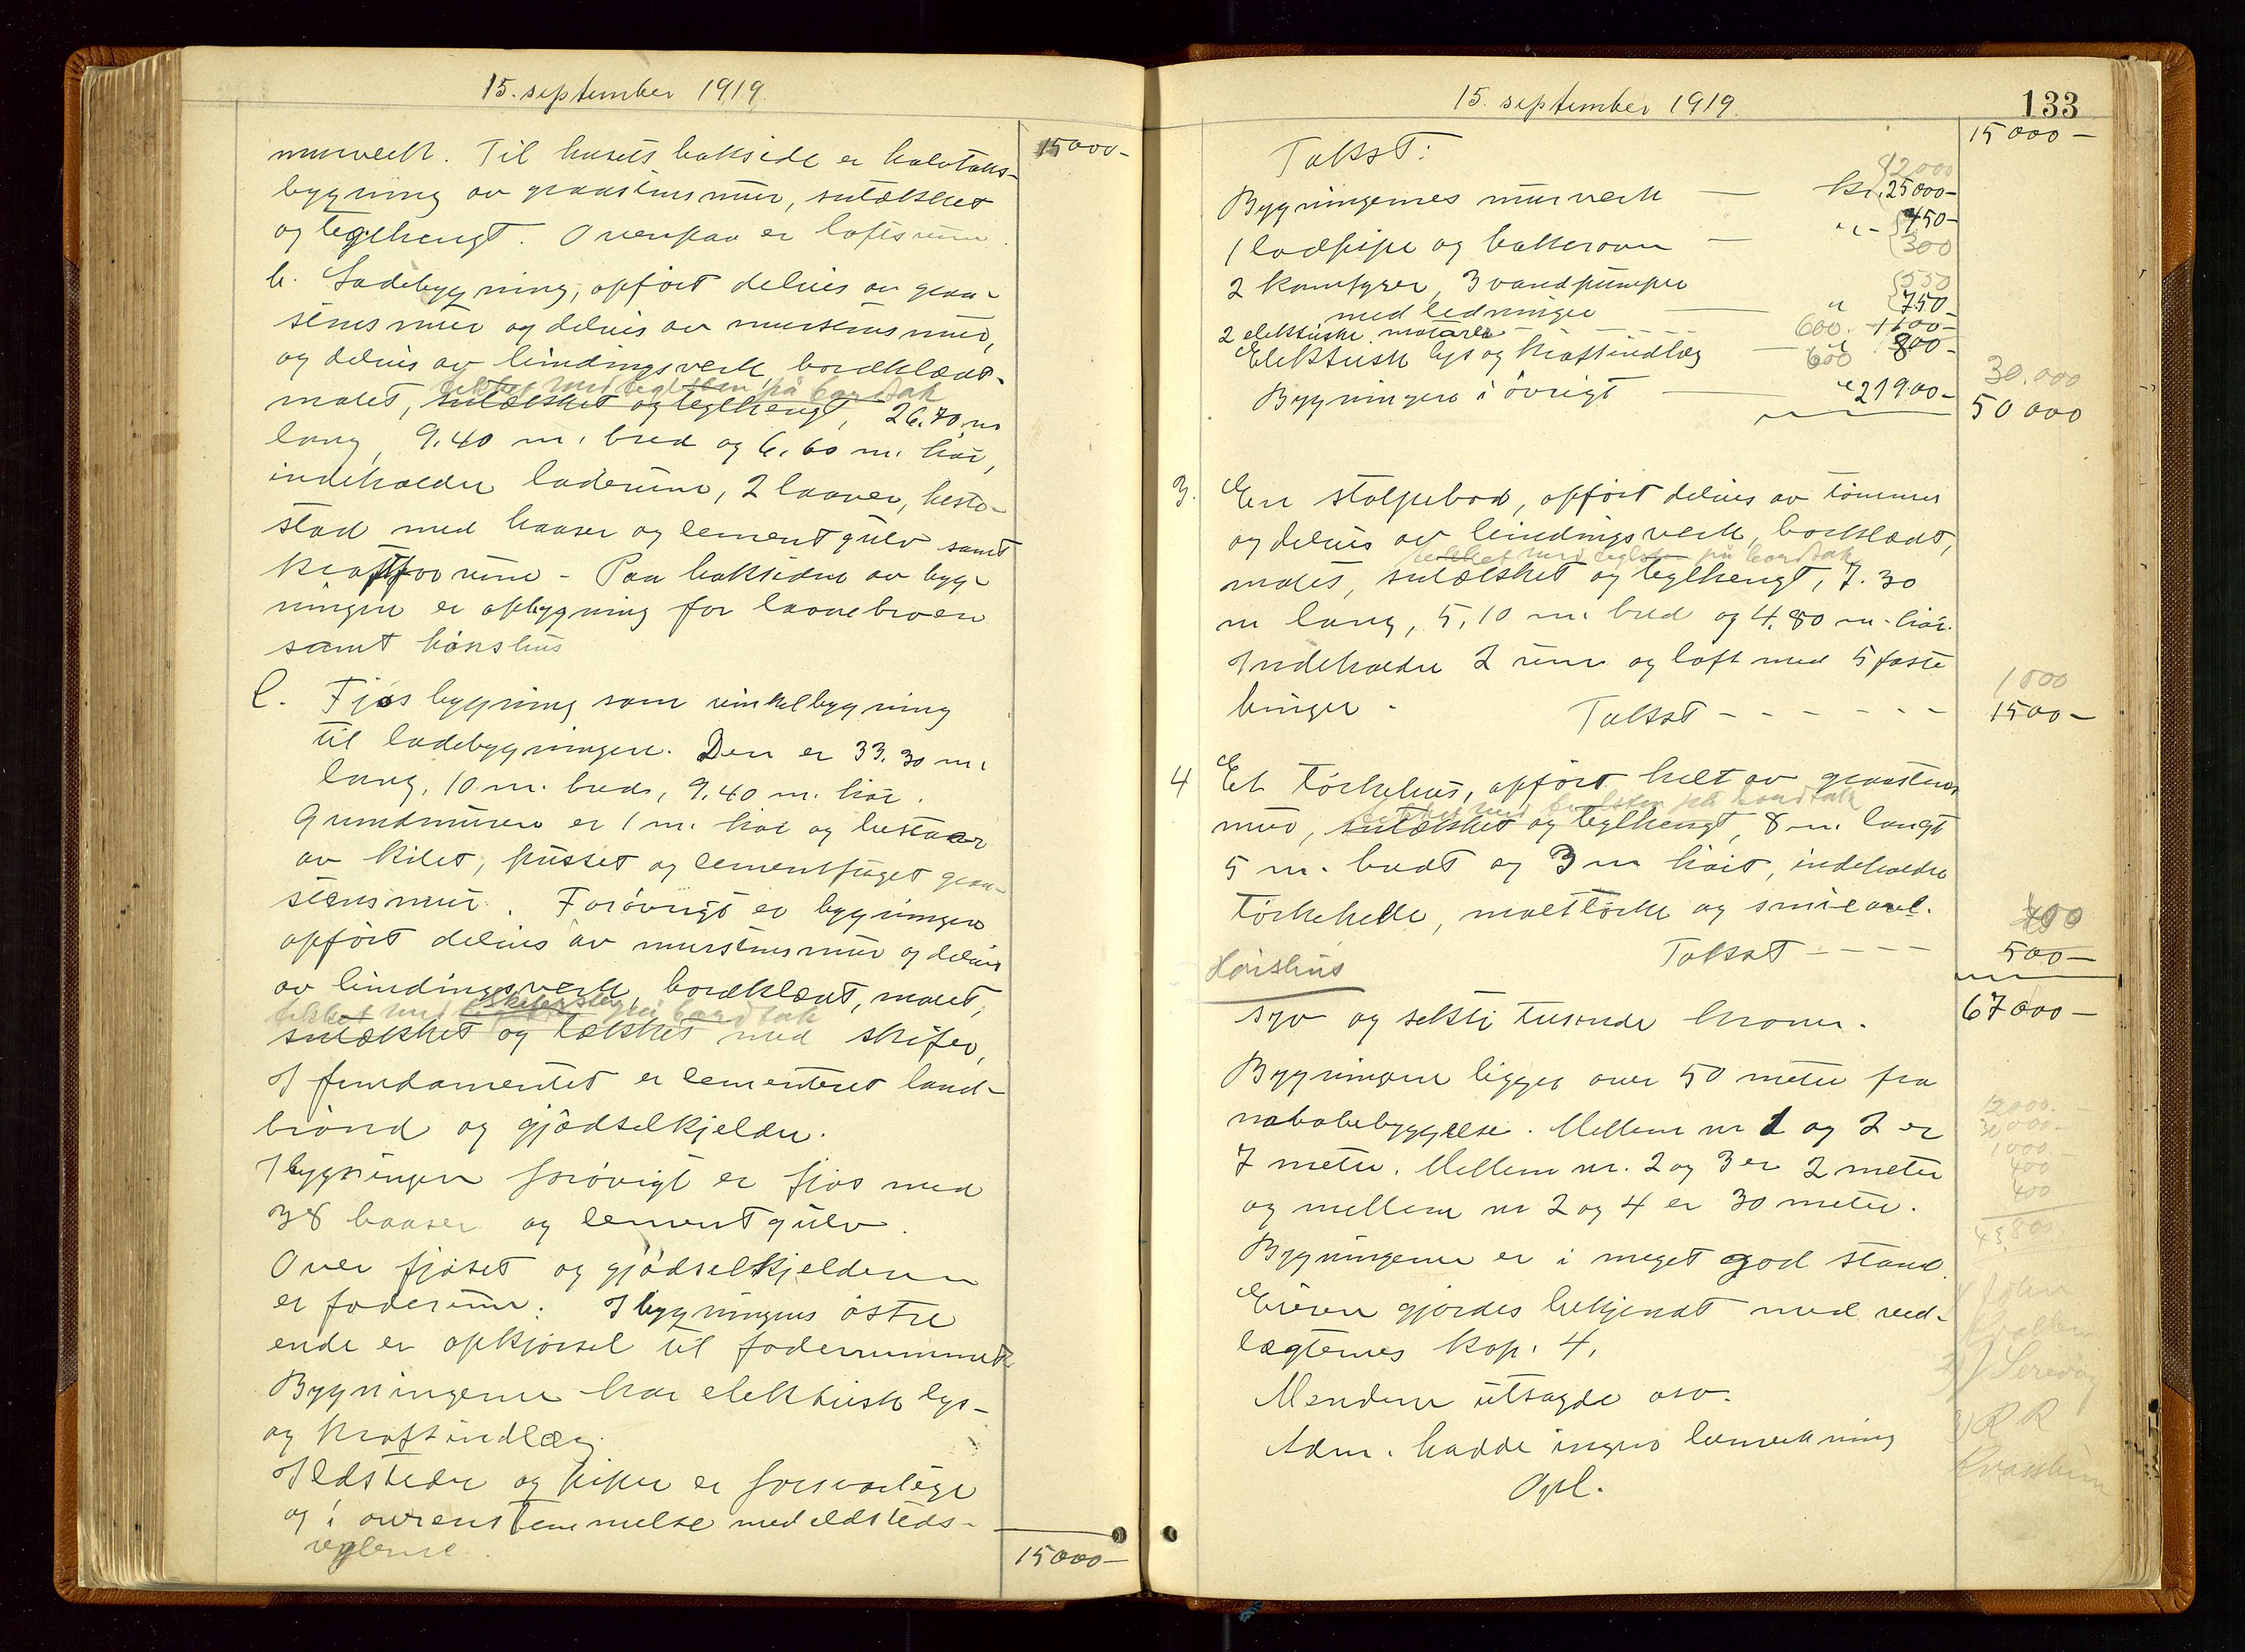 15. september 1919.
murverk. Til husets bakside er halvtaks-
bygning av graastensmur, sutækket
og teglhengt. Ovenpaa er loftsrum.
b. Ladebygning, opført delvis av graa-
stensmur og delvis av murstensmur,
og delvis av bindingsverk bordklædt,
tekket med teglsten på bordtak
malet, sutækket og teglhengt, 26.70 m
lang, 9.40 m. bred og 6.60 m. høi,
indeholder laderum, 2 laaver, heste-
stad med baaser og cementgulv samt
kraftforrum - Paa baksiden av byg-
ningen er opbygning for laavebroen
samt hønshus
c. Fjøsbygning som vinkelbygning
til ladebygningen. Den er 33.30 m.
lang, 10 m. bred, 9,40 m. høi.
Grundmuren er 1 m. høi og bestaaer
av kilet, pusset og cementfuget graa-
stensmur. Forøvrigt er bygningen
opført delvis av murstensmur og delvis
av bindingsverk, bordklædt, malet,
tekket med skifersten på bordtak
sutækket og tækket med skifer,
I fundamentet er cementeret land-
brønd og gjødselkjelder.
I bygningen forøvrigt er fjøs med
38 baaser og cementgulv.
Over fjøset og gjødselkjelderen
er foderrum. I bygningens østre
ende er opkjørsel til foderrummet.
Bygningerne har elektrisk lys-
og kraftindlæg.
Ildsteder og piper er forsvarlige
og i overenstemmelse med ildsteds-
reglerne.
15000-
15000-
15. september 1919.
133
15000-
Takst:
12000
Bygningernes murverk — kr. 25000-
1 ladpipe og bakerovn — " - 450-
300
2 komfyrer, 3 vandpumper
550
med ledninger — " 750-
2 elektriske motorer - - - - 600. 1100-
Elektrisk lys og kraftindlæg — 600 " 800-
30.000
Bygningen i øvrigt — " 21900-
50000
3. En stolpebod, opført delvis av tømmer
og delvis av bindingsverk, bordklædt,
tekket med teglsten på bordtak
malet, sutækket og teglhengt, 7.30
m lang, 5,10 m. bred og 4.80 m. høi.
Indeholder 2 rum og loft med 5 faste
1000
binger. Takst - - - - - - 1500-
4 Et tørkehus, opført helt av graastens
tekket med teglsten på bordtak
mur, sutækket og teglhengt, 8 m. langt
5 m. bredt og 3 m høit, indeholder
tørkehelle, malttørke og smieavl.
400
Takst - - - 500-
Hønshus
67000-
syv og seksti tusinde kroner.
Bygningene ligger over 50 meter fra
nabobebyggelse. Mellem nr 1 og 2 er
7 meter. Mellem nr. 2 og 3 er 2 meter
og mellem nr 2 og 4 er 30 meter.
Bygningerne er i meget god stand.
Eieren gjordes bekjendt med ved-
tægternes kap. 4.
Mændene utsagde osv.
Adm. hadde ingen bemerkning
Opl.
12000.-
30000.-
1000.-
400
400
43,800.